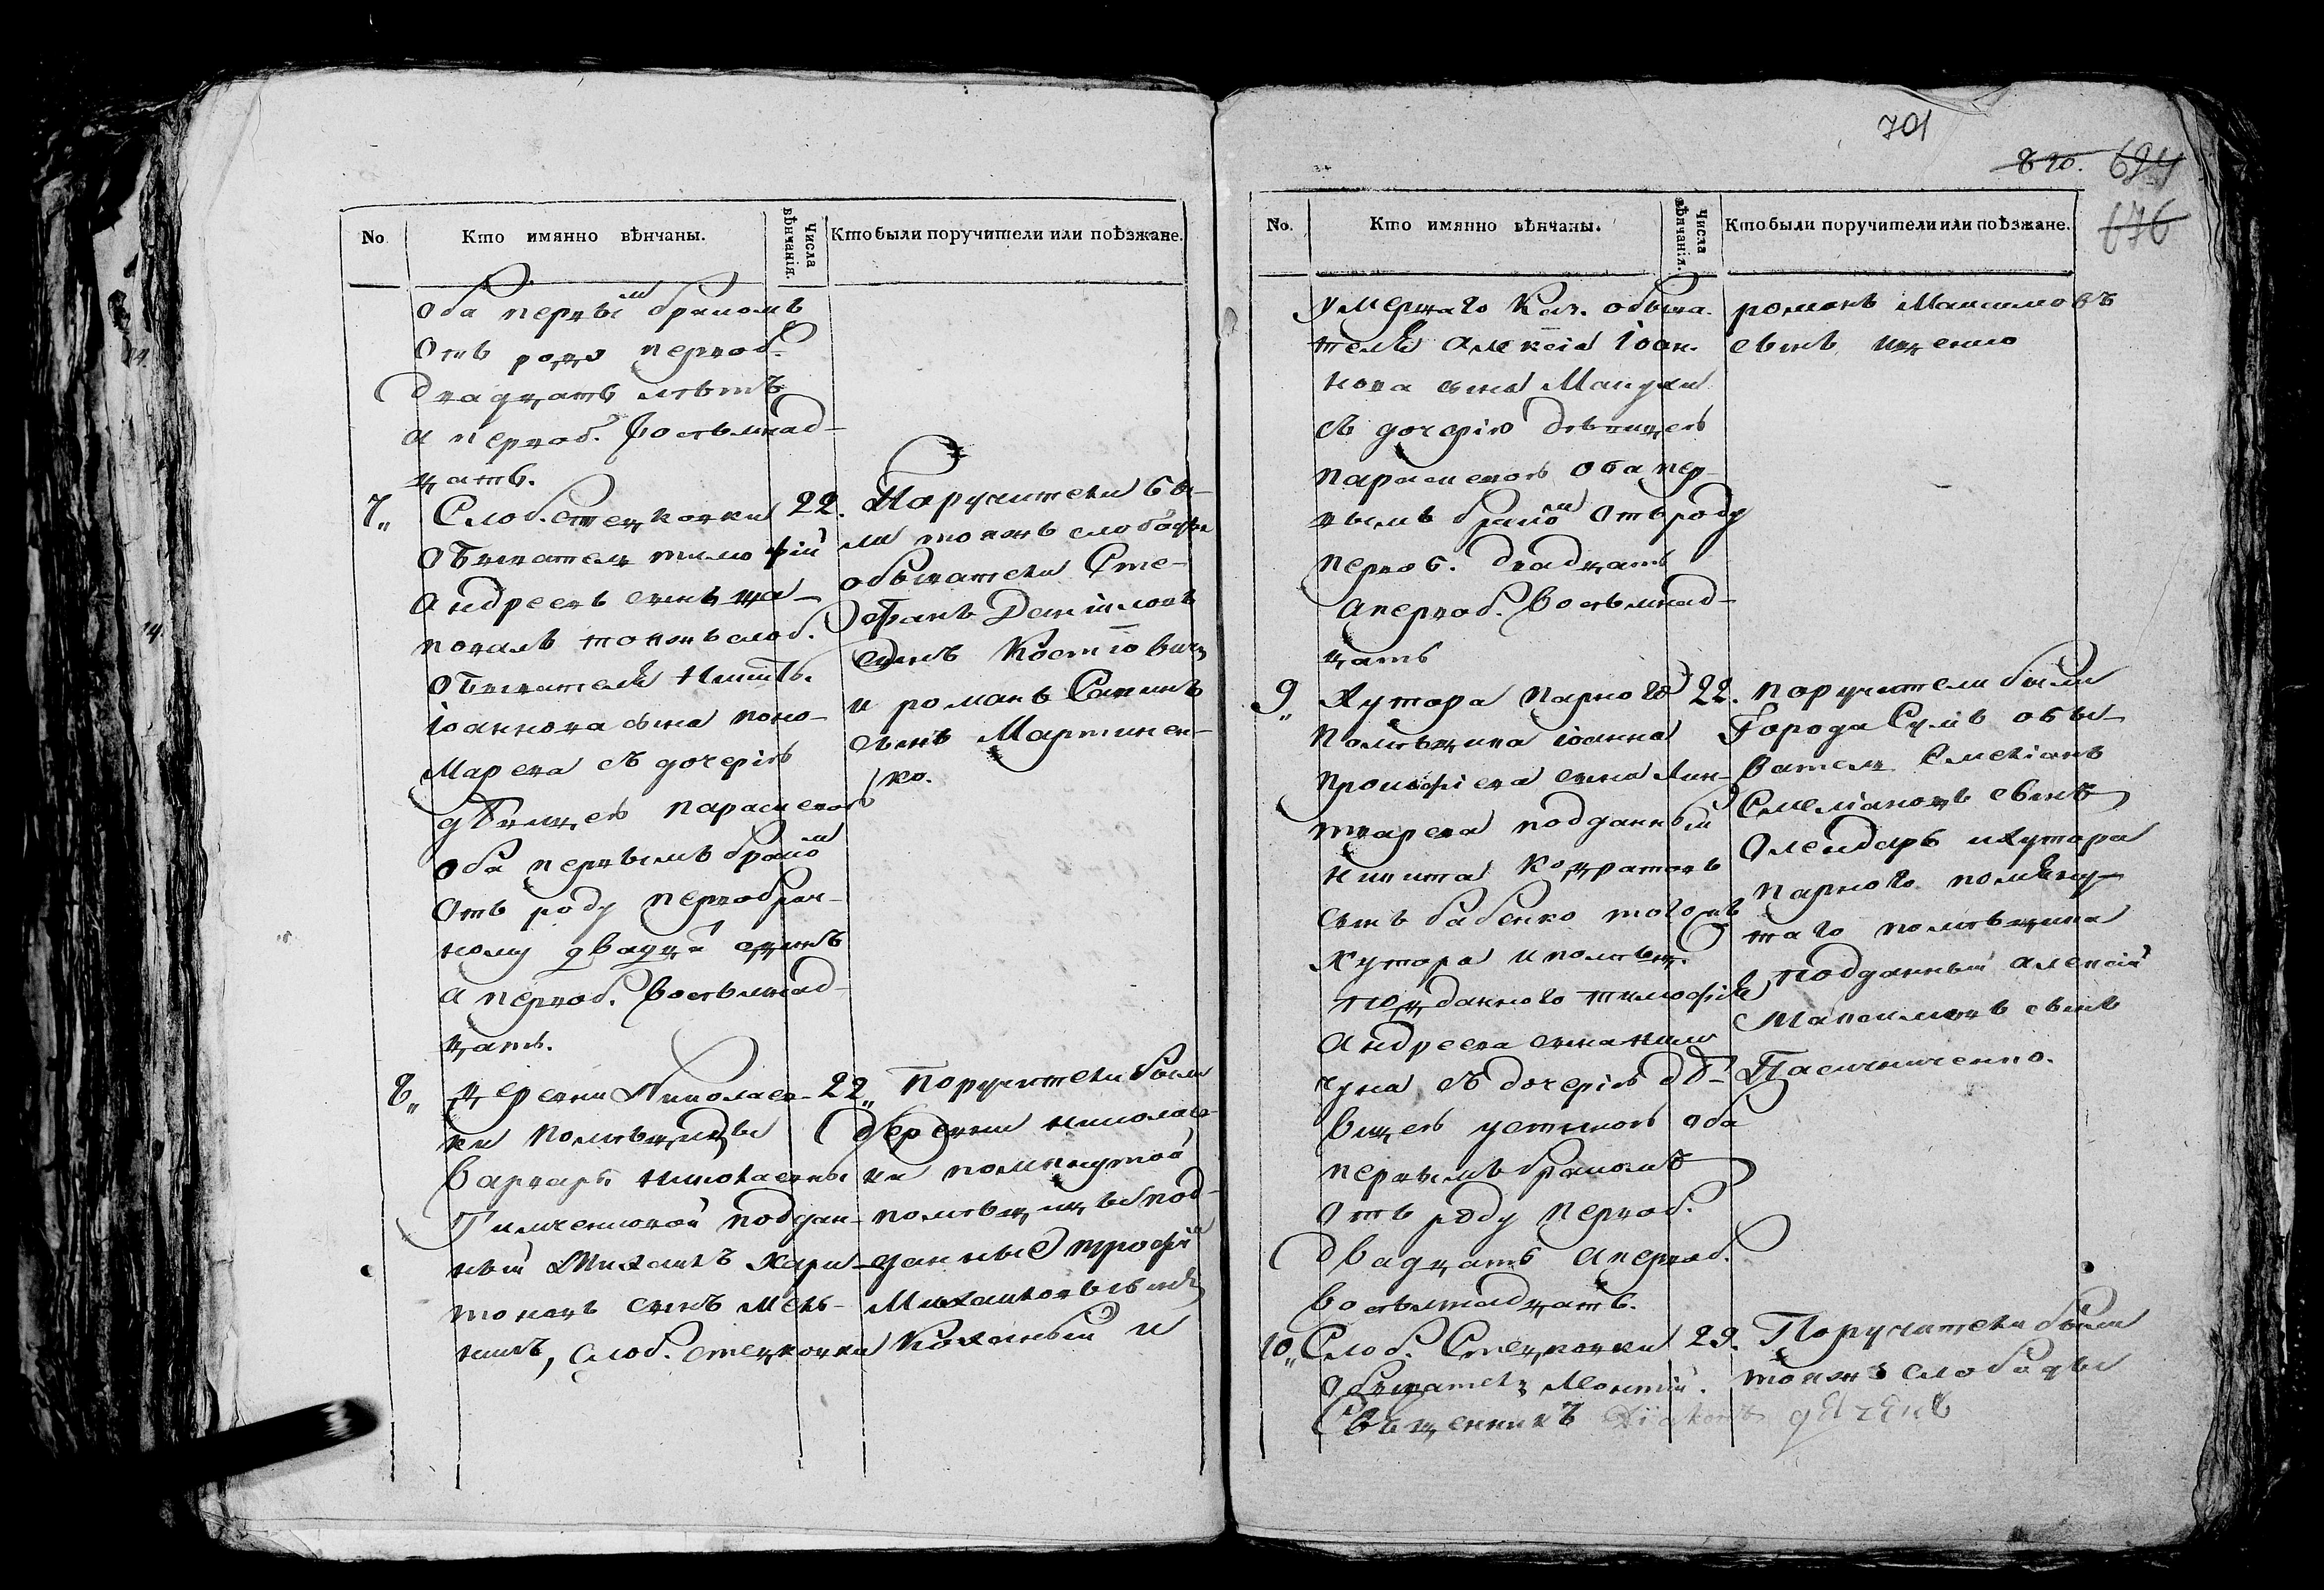 No.
Кто имянно вѣнчаны.
Числа вѣнчанія.
Кто были поручители или поѣзжане.
Оба первы бракомъ
Отъ роду первоб.
двадцать лѣтъ
а первоб. восѣмнад-
цать.
7„ Слоб. Стецковки
Обыватель тимофій
Андреевъ сынъ ща-
повалъ тоижъ слоб.
Обывателя Никиты
Іоаннова сына поно-
марева съ дочерію
дѣвицею параскевою
оба первымъ бракомъ
Отъ роду первобрач-
ному двадца одинъ
а первоб. восѣмнад-
цать.
22. Поручители бы-
ли тоижъ слободы
обыватели Сте-
фанъ Даниловъ
сынъ Костю
и романъ Савинъ
сынъ Мартинен-
ко.
8„ деревни Николаев-
ки помѣщицы
Варвары николаевны
подан-
ный Михаилъ Хари-
тоновъ сынъ мель-
никъ, слоб. стецковки
22„ Поручители были
деревни николаев-
ки помянутой
помѣщицы под-
данные трофій
Михайловъ сынъ
Коханый и
701
820. 694
676
No.
Кто имянно вѣнчаны.
Числа вѣнчанія.
Кто были поручители или поѣзжане.
умершаго Каз. обыва-
теля алексія Іоан-
нова сына Макухи
съ дочерію дѣвицею
параскевою оба пер-
вымъ бракомъ Отъ роду
первоб. двадцать
а первоб. восѣмнад-
цать
романъ Максимовъ
сынъ ищенко
9„ Хутора парного
помѣщика іоанна
сына Лин-
тварева подданный
Никита Кодратовъ
сынъ бабенко тогожъ
хутора и помѣщ.
подданного тимофія
Андреева сына
съ дочерію дѣ-
вицею устиною оба
первымъ бракомъ
отъ роду первоб.
двадцать а первоб.
восѣмнадцать.
22. поручители были
Города Сумъ обы-
ватель Емеліанъ
Емеліановъ сынъ
и хутора
парного помяну-
таго помѣщика
подданный алексій
Максимовъ сынъ
Пасичниченко.
10„ Слоб. Стецковки
Обыватель Леонтій
29. Поручители были
тоижъ слободы
Священникъ